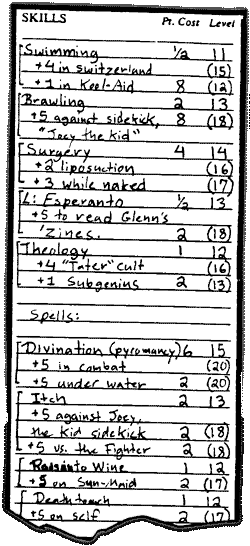 SKILLS Pt. Cost Level
Swimming 1/2 11
+4 in Switzerland (15)
+1 in Kool-Aid 8 (12)
Brawling 2 13
+5 against sidekick, 8 (18)
"Joey the kid"
Surgery 4 14
+2 liposuction (16)
+3 while naked (17)
L: Esperanto 1/2 13
+5 to read Glenn's
'zines. 2 (18)
Theology 1 12
+4 "Tater" cult (16)
+1 Subgenius 2 (13)
Spells:
Divination (pyromancy) 6 15
+5 in combat (20)
+5 under water 2 (20)
Itch 2 13
+5 against Joey,
the kid sidekick 2 (18)
+5 vs. the Fighter 2 (18)
to Wine 1 12
+5 on Sun-Maid 2 (17)
Deathtouch 1 12
+5 on self 2 (17)